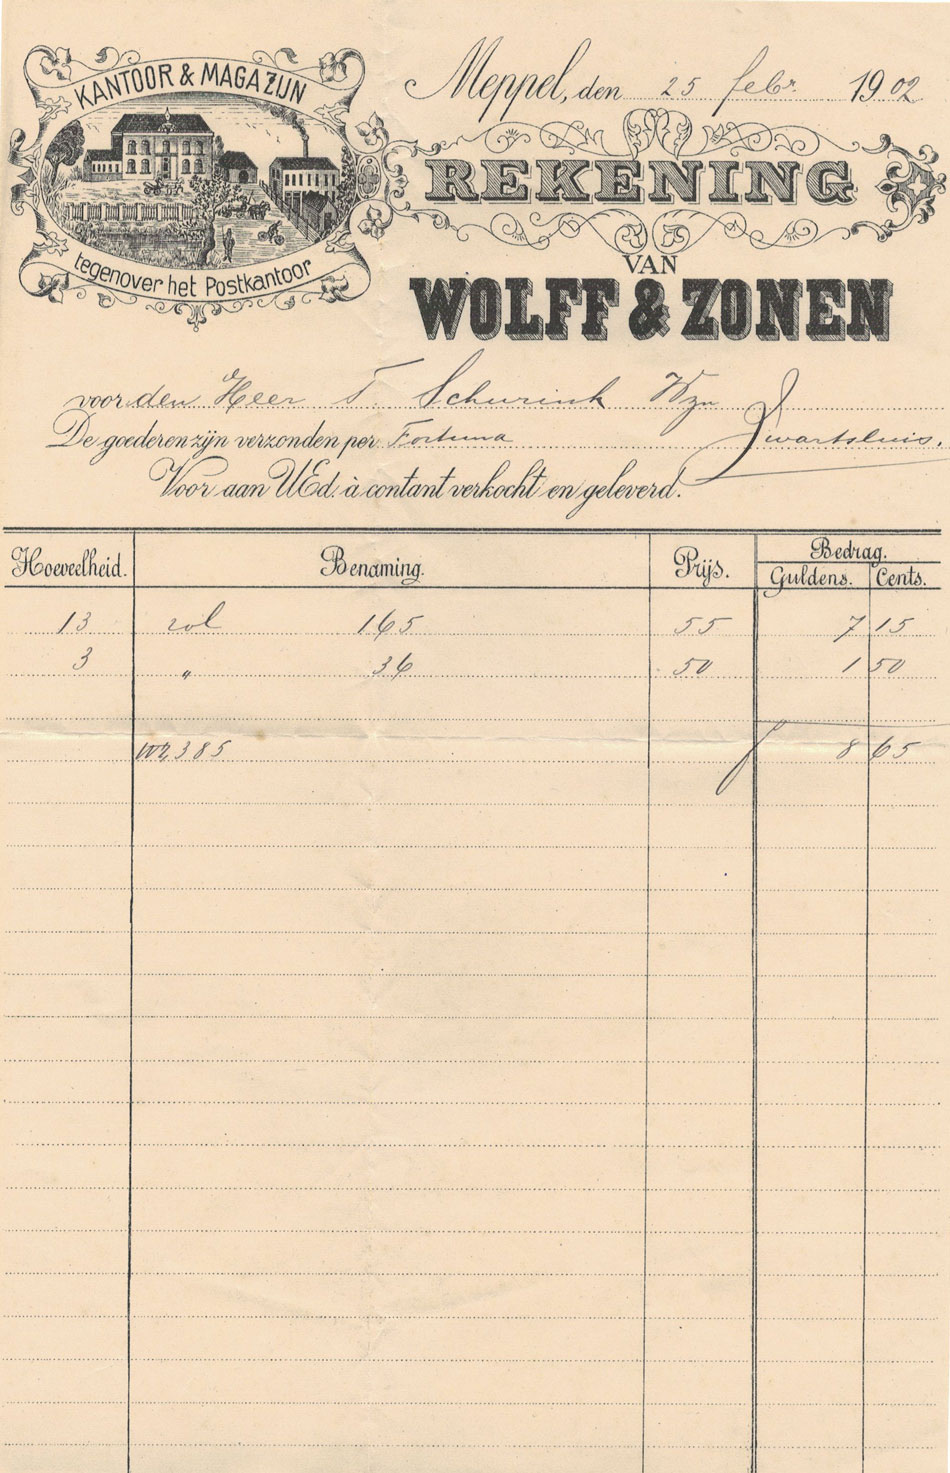 KANTOOR & MAGAZIJN
tegenover het Postkantoor
Meppel, den 25 febr. 1902
REKENING
VAN
WOLFF & ZONEN
voor den Heer T. Schurink Wzn
De goederen zijn verzonden per Fortuna Zwartsluis.
Voor aan UEd. à contant verkocht en geleverd.
Hoeveelheid. Benaming. Prijs. Bedrag.
Guldens. Cents.
13 rol 165 55 7 15
3 " 36 50 1 50
385 f 8 65